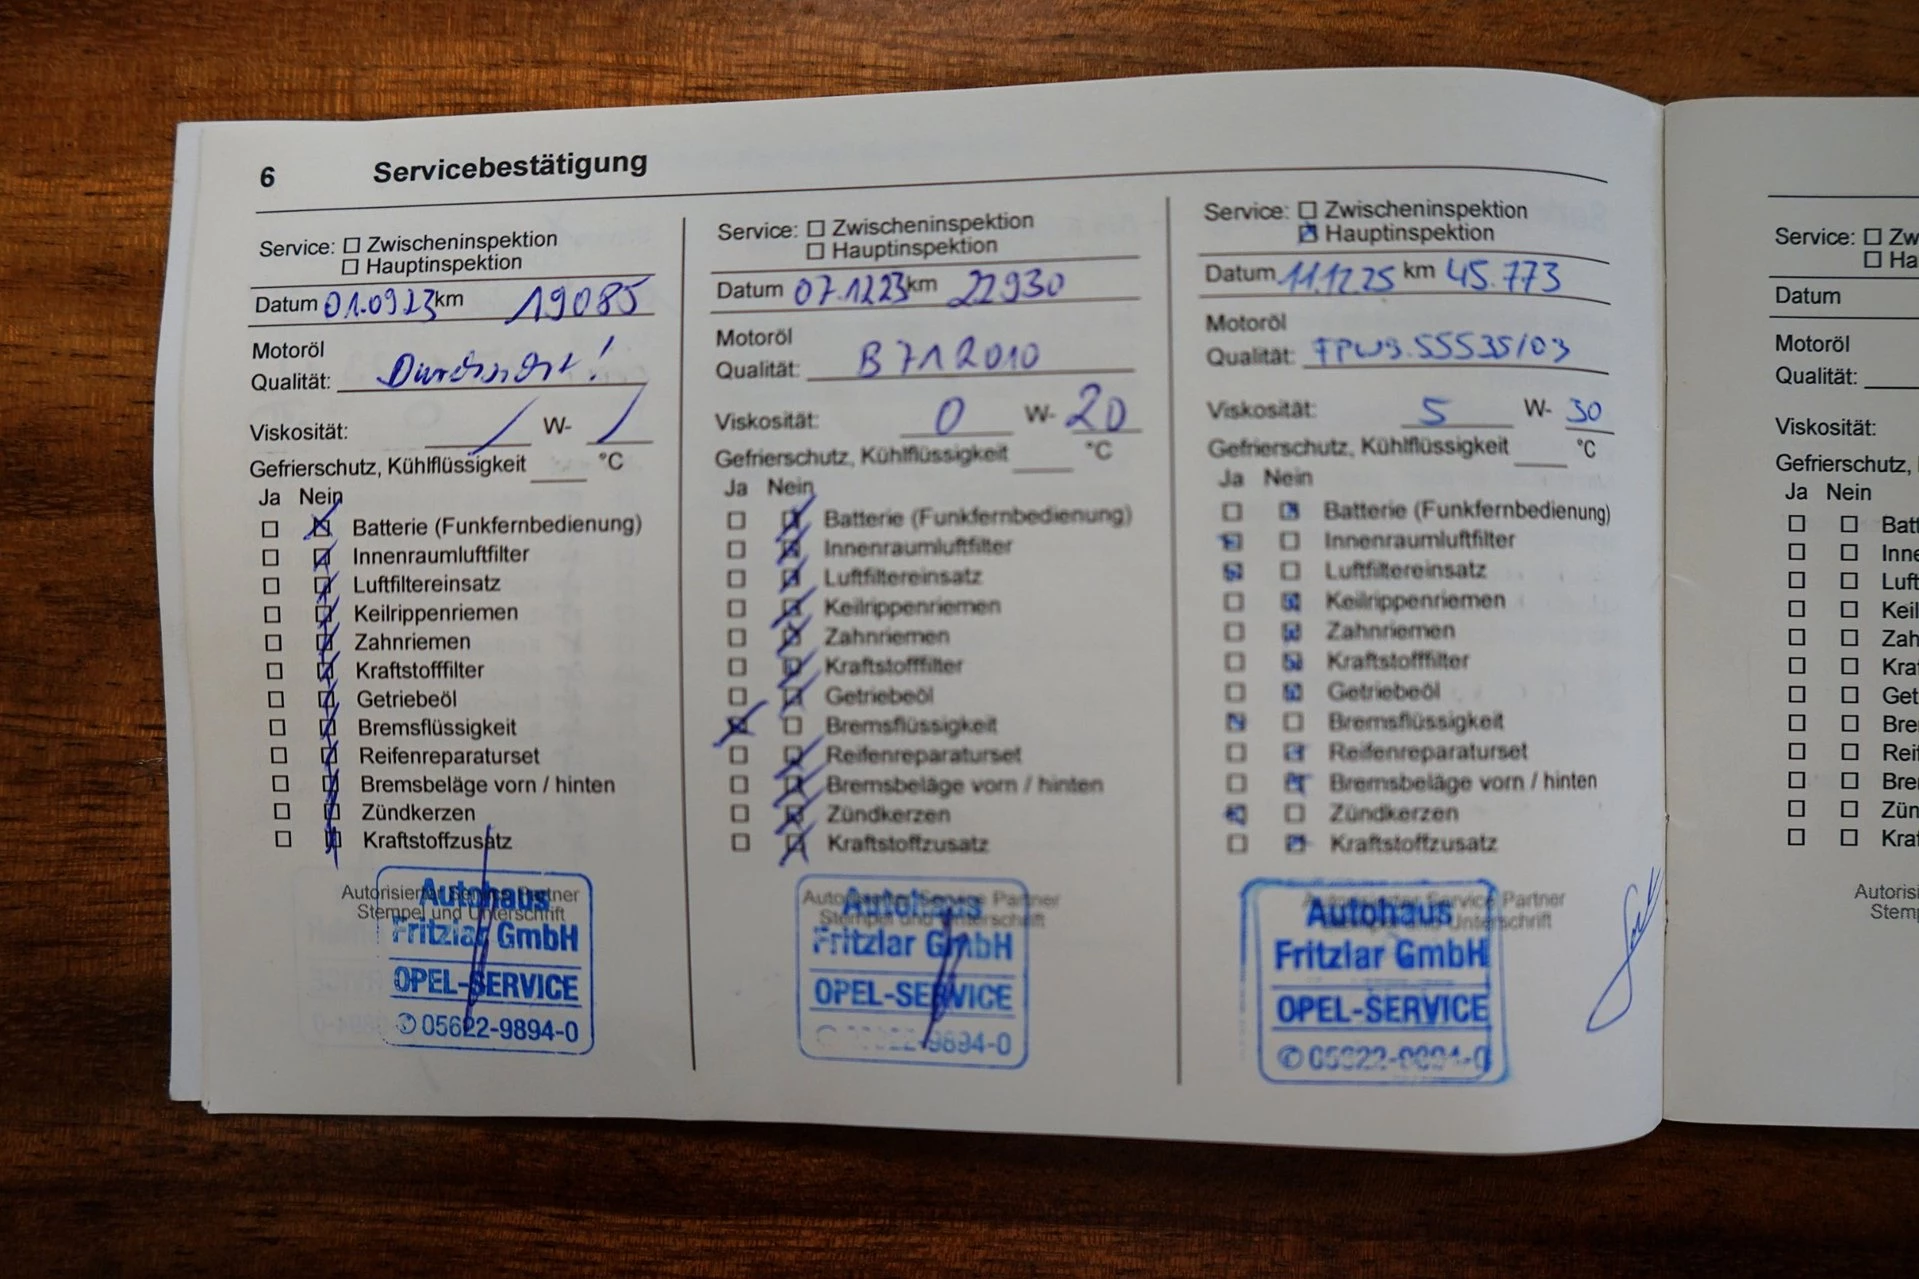 6 Servicebestätigung
Service: Zwischeninspektion
Hauptinspektion
Datum 01.09.23 km 19085
Motoröl
Qualität: Durchsicht!
Viskosität: / W- /
Gefrierschutz, Kühlflüssigkeit °C
Ja Nein
Batterie (Funkfernbedienung)
Innenraumluftfilter
Luftfiltereinsatz
Keilrippenriemen
Zahnriemen
Kraftstofffilter
Getriebeöl
Bremsflüssigkeit
Reifenreparaturset
Bremsbeläge vorn / hinten
Zündkerzen
Kraftstoffzusatz
Autorisierter Service Partner
Stempel und Unterschrift
Autohaus
Fritzlar GmbH
OPEL-SERVICE
✆ 05622-9894-0
Service: Zwischeninspektion
Hauptinspektion
Datum 07.12.23 km 22930
Motoröl
Qualität: B 71 2010
Viskosität: 0 W- 20
Gefrierschutz, Kühlflüssigkeit °C
Ja Nein
Batterie (Funkfernbedienung)
Innenraumluftfilter
Luftfiltereinsatz
Keilrippenriemen
Zahnriemen
Kraftstofffilter
Getriebeöl
Bremsflüssigkeit
Reifenreparaturset
Bremsbeläge vorn / hinten
Zündkerzen
Kraftstoffzusatz
Autorisierter Service Partner
Stempel und Unterschrift
Autohaus
Fritzlar GmbH
OPEL-SERVICE
✆ 05622-9894-0
Service: Zwischeninspektion
Hauptinspektion
Datum 11.12.25 km 45.773
Motoröl
Qualität: FPW9.55535/03
Viskosität: 5 W- 30
Gefrierschutz, Kühlflüssigkeit °C
Ja Nein
Batterie (Funkfernbedienung)
Innenraumluftfilter
Luftfiltereinsatz
Keilrippenriemen
Zahnriemen
Kraftstofffilter
Getriebeöl
Bremsflüssigkeit
Reifenreparaturset
Bremsbeläge vorn / hinten
Zündkerzen
Kraftstoffzusatz
Autorisierter Service Partner
Stempel und Unterschrift
Autohaus
Fritzlar GmbH
OPEL-SERVICE
✆ 05622-9894-0
Service: Zw
Ha
Datum
Motoröl
Qualität:
Viskosität:
Gefrierschutz,
Ja Nein
Batt
Inne
Luft
Keil
Zah
Kraf
Get
Bre
Reif
Bre
Zün
Kraf
Autoris
Stemp